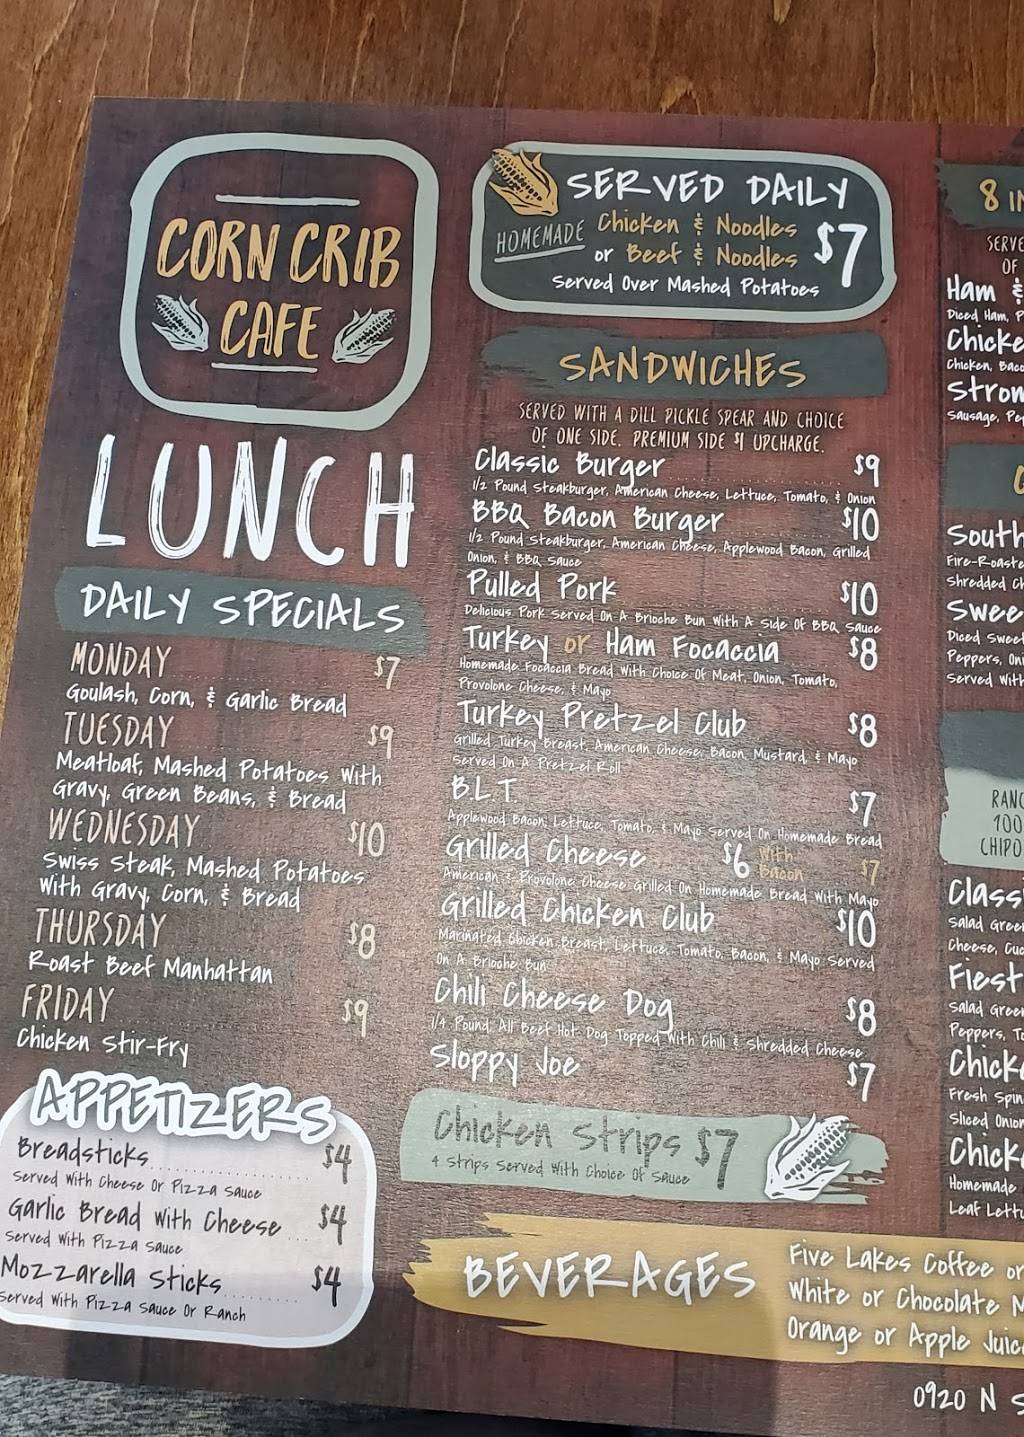 CORN CRIB
CAFE
LUNCH
DAILY SPECIALS
MONDAY $7
Goulash, Corn, & Garlic Bread
TUESDAY $9
Meatloaf, Mashed Potatoes With
Gravy, Green Beans, & Bread
WEDNESDAY $10
Swiss Steak, Mashed Potatoes
With Gravy, Corn, & Bread
THURSDAY $8
Roast Beef Manhattan
FRIDAY $9
Chicken Stir-Fry
APPETIZERS
Breadsticks $4
Served With Cheese Or Pizza Sauce
Garlic Bread With Cheese $4
Served With Pizza Sauce
Mozzarella Sticks $4
Served With Pizza Sauce Or Ranch
SERVED DAILY
HOMEMADE Chicken & Noodles
or Beef & Noodles $7
Served Over Mashed Potatoes
SANDWICHES
SERVED WITH A DILL PICKLE SPEAR AND CHOICE
OF ONE SIDE. PREMIUM SIDE $1 UPCHARGE.
Classic Burger $9
1/2 Pound Steakburger, American Cheese, Lettuce, Tomato, & Onion
BBQ Bacon Burger $10
1/2 Pound Steakburger, American Cheese, Applewood Bacon, Grilled
Onion, & BBQ Sauce
Pulled Pork $10
Delicious Pork Served On A Brioche Bun With A Side Of BBQ Sauce
Turkey or Ham Focaccia $8
Homemade Focaccia Bread With Choice Of Meat, Onion, Tomato,
Provolone Cheese, & Mayo
Turkey Pretzel Club $8
Grilled Turkey Breast, American Cheese, Bacon, Mustard & Mayo
Served On A Pretzel Roll
B.L.T. $7
Applewood Bacon, Lettuce, Tomato, & Mayo Served On Homemade Bread
Grilled Cheese $6 With Bacon $7
American & Provolone Cheese Grilled On Homemade Bread With Mayo
Grilled Chicken Club $10
Marinated Chicken Breast, Lettuce, Tomato, Bacon, & Mayo Served
On A Brioche Bun
Chili Cheese Dog $8
1/4 Pound All Beef Hot Dog Topped With Chili & Shredded Cheese
Sloppy Joe $7
Chicken Strips $7
4 Strips Served With Choice Of Sauce
BEVERAGES
Five Lakes Coffee or
White or Chocolate M
Orange or Apple Juic
0920 N S
8 IN
SERVE
OF
Ham &
Diced Ham, P
Chicke
Chicken, Baco
Strom
Sausage, Pep
South
Fire-Roaste
Shredded Ch
Swee
Diced Sweet
Peppers, Oni
Served With
RANC
100
CHIPO
Class
Salad Green
Cheese, Cuc
Fiest
Salad Green
Peppers, To
Chick
Fresh Spin
Sliced Onion
Chick
Homemade
Leaf Lettu